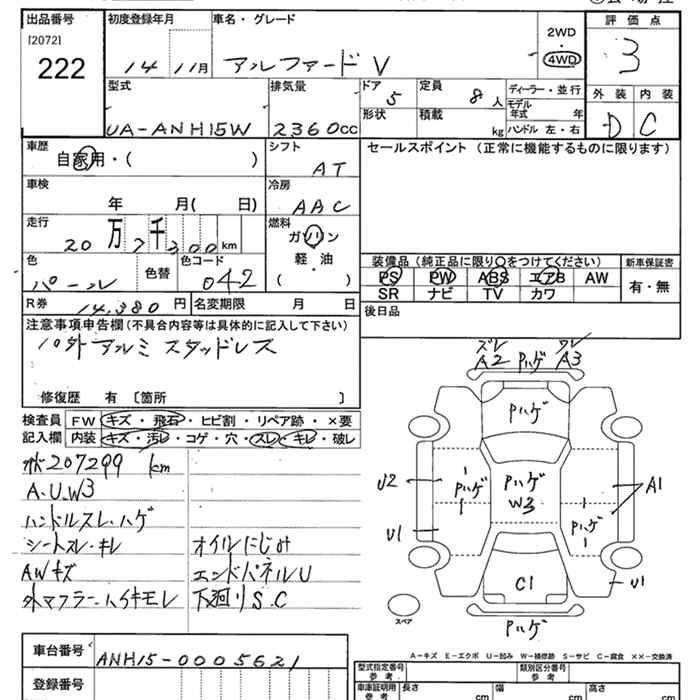 出品番号 初度登録年月 車名・グレード 評価点
[2072] 2WD
222 ・
14 11月 アルファード V 4WD 3
型式 排気量 ドア 5 定員 8人 ディーラー・並行 外装 内装
形状 積載 kg モデル年式 年
UA-ANH15W 2360cc ハンドル 左・右 D C
車歴 シフト セールスポイント (正常に機能するものに限ります)
自家用・( ) AT
車検 冷房
年 月( 日) AAC
走行 燃料
20万7千300km ガソリン
色 色替 色コード 軽・油 装備品 (純正品に限り○をつけてください) 新車保証書
パール 042 ( ) PS PW ABS エアB AW 有・無
R券 14,380円 名変期限 月 日 SR ナビ TV カワ
注意事項申告欄(不具合内容等は具体的に記入して下さい) 後日品
パ外アルミ スタッドレス
修復歴 有 〔箇所 〕
検査員 FW キズ・飛石・ヒビ割・リペア跡・×要
記入欄 内装 キズ・汚レ・コゲ・穴・スレ・キレ・破レ
207299km
A.U.W3
ハンドルスレ・ハゲ
シートスレ・キレ オイルにじみ
AWキズ エンドパネルU
外マフラー 下廻りS.C
ズレ ワレ
A2 Pハゲ A3
Pハゲ
U2 Pハゲ Pハゲ A1
W3
U1 Pハゲ
C1 U1
スペア
Pハゲ
A−キズ E−エクボ U−凹み W−補修跡 S−サビ C−腐食 ××−交換済
車台番号 ANH15-0005621 型式指定番号 参考 類別区分番号 参考
登録番号 車庫証明用 参考 長さ cm 幅 cm 高さ cm